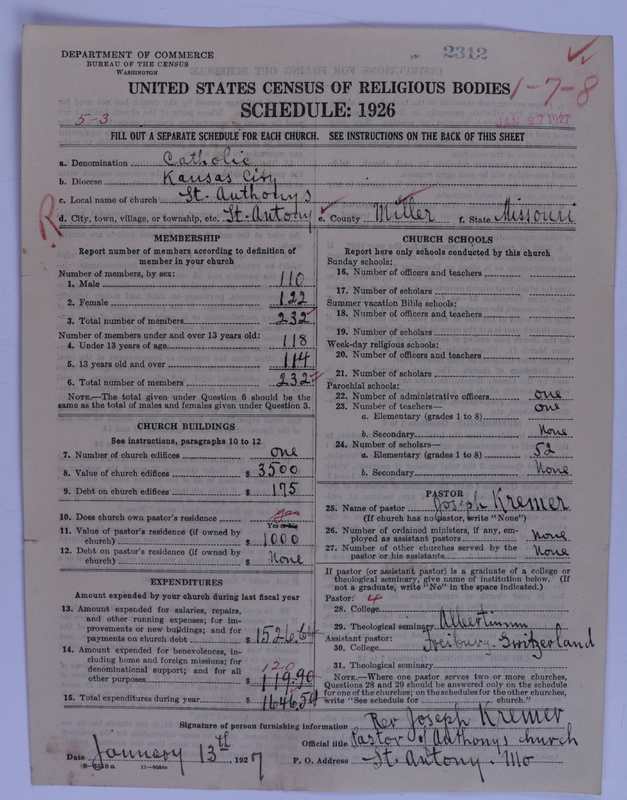 DEPARTMENT OF COMMERCE
BUREAU OF THE CENSUS
WASHINGTON
2312
UNITED STATES CENSUS OF RELIGIOUS BODIES
1-7-8
SCHEDULE: 1926
5-3
JAN 27 1927
FILL OUT A SEPARATE SCHEDULE FOR EACH CHURCH. SEE INSTRUCTIONS ON THE BACK OF THIS SHEET
a. Denomination Catholic
b. Diocese Kansas City
c. Local name of church St. Anthonys
R
d. City, town, village, or township, etc. St. Antony e. County Miller f. State Missouri
MEMBERSHIP
Report number of members according to definition of
member in your church
Number of members, by sex:
1. Male 110
2. Female 122
3. Total number of members 232
Number of members under and over 13 years old:
4. Under 13 years of age 118
5. 13 years old and over 114
6. Total number of members 232
NOTE.—The total given under Question 6 should be the
same as the total of males and females given under Question 3.
CHURCH BUILDINGS
See instructions, paragraphs 10 to 12
7. Number of church edifices one
8. Value of church edifices $ 3500
9. Debt on church edifices $ 175
10. Does church own pastor's residence yes
Yes or No
11. Value of pastor's residence (if owned by
church) $ 1000
12. Debt on pastor's residence (if owned by
church) $ None
EXPENDITURES
Amount expended by your church during last fiscal year
13. Amount expended for salaries, repairs,
and other running expenses; for im-
provements or new buildings; and for
payments on church debt $ 1526,64
14. Amount expended for benevolences, in-
cluding home and foreign missions; for
denominational support; and for all
120
other purposes $ 119.90
15. Total expenditures during year $ 1646,54
CHURCH SCHOOLS
Report here only schools conducted by this church
Sunday schools:
16. Number of officers and teachers
17. Number of scholars
Summer vacation Bible schools:
18. Number of officers and teachers
19. Number of scholars
Week-day religious schools:
20. Number of officers and teachers
21. Number of scholars
Parochial schools:
22. Number of administrative officers one
23. Number of teachers—
a. Elementary (grades 1 to 8) one
b. Secondary None
24. Number of scholars—
a. Elementary (grades 1 to 8) 52
b. Secondary None
PASTOR
25. Name of pastor Joseph Kremer
(If church has no pastor, write "None")
26. Number of ordained ministers, if any, em-
ployed as assistant pastors None
27. Number of other churches served by the
pastor or his assistants None
If pastor (or assistant pastor) is a graduate of a college or
theological seminary, give name of institution below. (If
not a graduate, write "No" in the space indicated.)
Pastor: 4
28. College
29. Theological seminary Albertinum
Assistant pastor:
30. College Freiburg. Switzerland
31. Theological seminary
NOTE.—Where one pastor serves two or more churches,
Questions 28 and 29 should be answered only on the schedule
for one of the churches; on the schedules for the other churches,
write "See schedule for church."
Signature of person furnishing information Rev Joseph Kremer
Official title Pastor of Anthonys church
Date January 13th, 1927 P. O. Address St. Antony. Mo